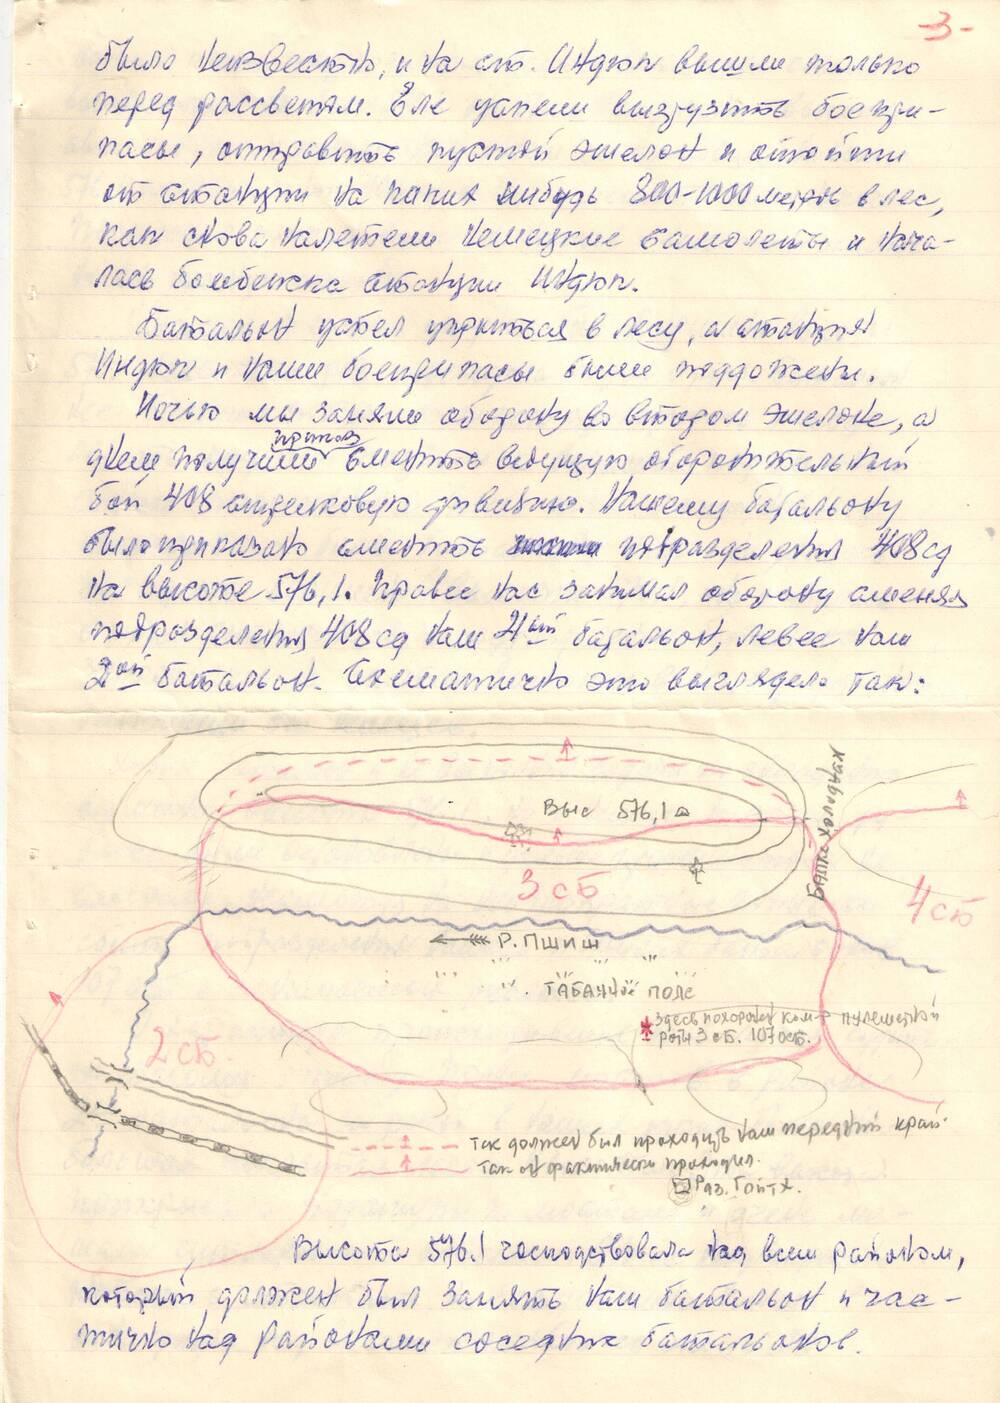 -3-
было неизвестно, и на ст. Индюк вышли только
перед рассветом. Еле успели выгрузить боепри-
пасы, отправить пустой эшелон и отойти
от станции на каких нибудь 800-1000 метров в лес,
как снова налетели немецкие самолеты и нача-
лась бомбежка станции Индюк.
Батальон успел укрыться в лесу, а станция
Индюк и наши боеприпасы были подожжены.
Ночью мы заняли оборону во втором эшелоне, а
приказ
днем получили сменить ведущую оборонительный
бой 408 стрелковую дивизию. Нашему батальону
было приказано сменить подразделения 408 сд
на высоте 576,1. Правее нас занимал оборону сменяя
подразделения 408 сд наш 4ый батальон, левее наш
2ой батальон. Схематично это выглядело так:
Выс 576,1
Балка Холодная
3 сб
4 сб
Р. Пшиш
Табачное поле
Здесь похоронен ком-р пулеметной
роты 3 сб. 107 осб.
2 сб.
Так должен был проходить наш передний край
Так он фактически проходил.
Раз. Гойтх.
Высота 576.1 господствовала над всем районом,
который должен был занять наш батальон и час-
тично над районами соседних батальонов.